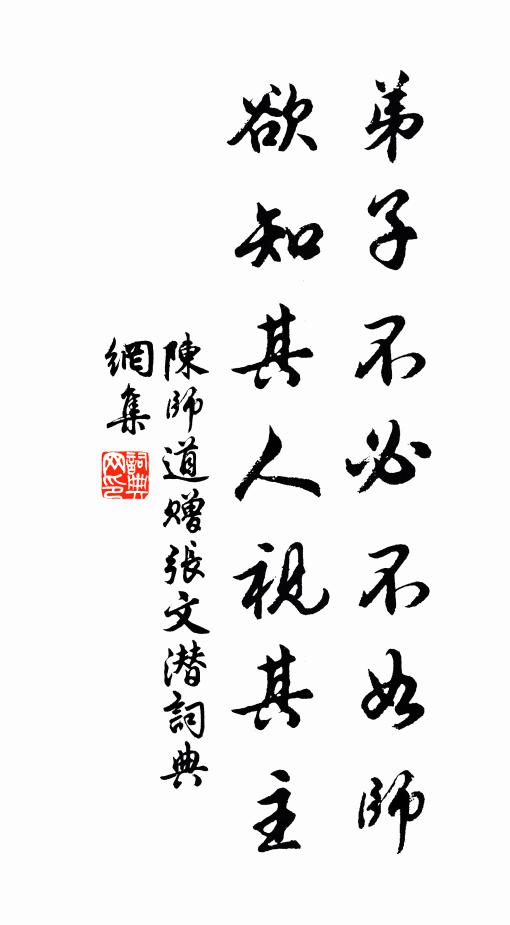 弟子不必不如師
欲知其人視其主
陳師道贈張文潜詞典
網集
詞典
网印